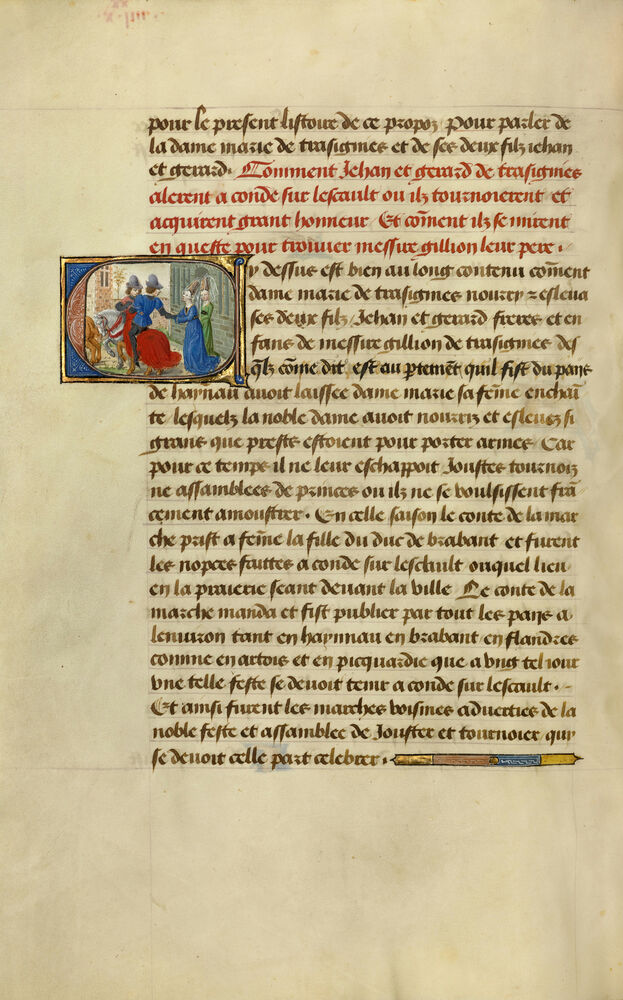 pour le present listoire de ce propoz Pour parler de
la dame marie de trasignies et de ses deux filz iehan
et gerard. Comment Jehan et gerard de trasignies
alerent a conde sur lescault ou ilz tournoierent et
acquirent grant honneur Et cõment ilz se mirent
en queste pour trouuer messire gillion leur pere.
Cy dessus est bien au long contenu cõment
dame marie de trasignies nourry z esleua
ses deux filz Jehan et gerard freres et en
fans de messire gillion de trasignies des
qlz cõme dit est au ptemẽt quil fist du pays
de haynau auoit laissee dame marie sa fẽme enchaĩ
te lesquelz la noble dame auoit nourriz et esleuez si
grans que prestz estoient pour porter armes Car
pour ce temps il ne leur eschappoit Joustes tournoiz
ne assamblees de princes ou ilz ne se voulsissent frã
cement amoustrer. En celle saison le conte de la mar
che prist a fẽme la fille du duc de brabant et furent
les nopces faittes a conde sur lescault ouquel lieu
en la praierie seant deuant la ville Le conte de la
marche manda et fist publier par tout les pays a
lenuiron tant en haynnau en brabant en flandres
comme en artois et en picquardie que a vng tel iour
vne telle feste se deuoit tenir a conde sur lescault.
Et ainsi furent les marches voisines aduerties de la
noble feste et assamblee de Jouster et tournoier quy
se deuoit celle part celebrer.